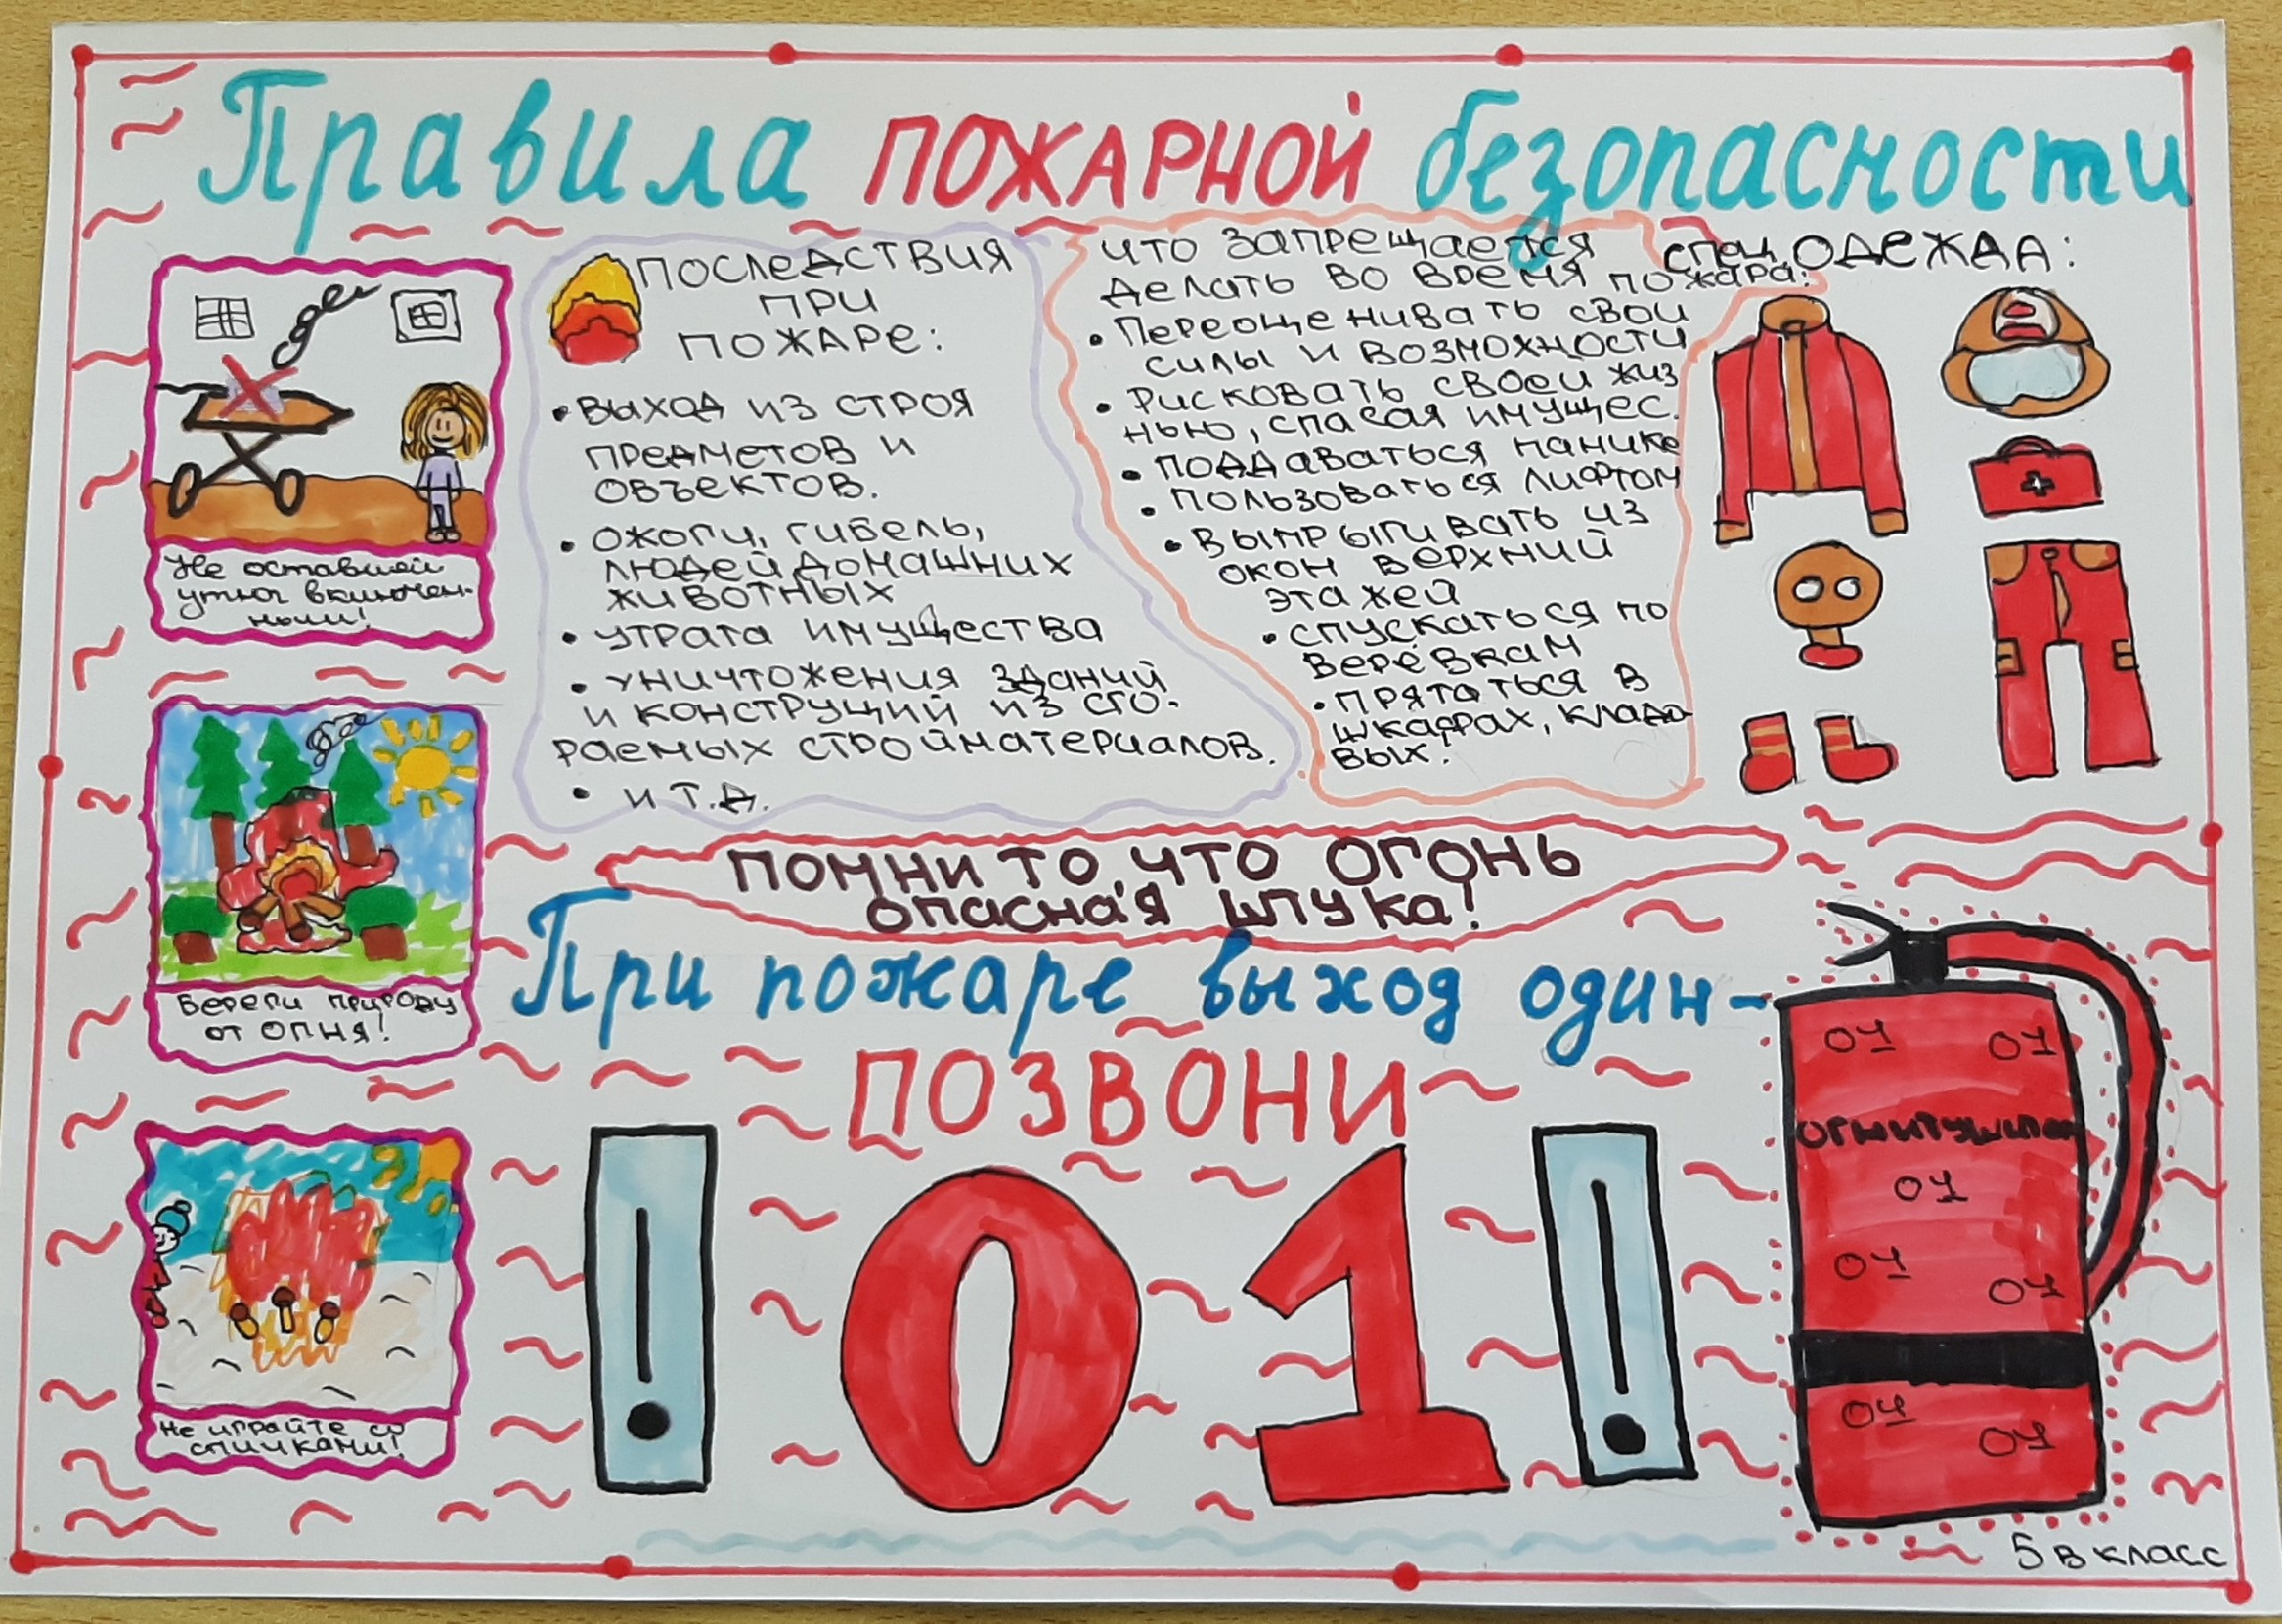 Правила ПОЖАРНОЙ безопасности
Не оставляй
утюг включен-
ным!
Береги природу
от огня!
Не играйте со
спичками!
Последствия
при
пожаре:
• Выход из строя
предметов и
объектов.
• ожоги, гибель,
людей, домашних
животных
• утрата имущества
• уничтожения зданий
и конструций из сго-
раемых стройматериалов.
• и т.д.
что запрещается
делать во время пожара:
• Переоценивать свои
силы и возможности
• Рисковать своей жиз
нью, спасая имущес.
• поддаваться панике
• пользоваться лифтом
• Выпрыгивать из
окон верхний
этажей
• спускаться по
верёвкам
• прятаться в
шкафах, кладо
вых!
спец. одежда:
Помни то, что огонь
опасная штука!
При пожаре выход один-
ПОЗВОНИ
! 01 !
01 01
01
01 01
01 01
5 в класс